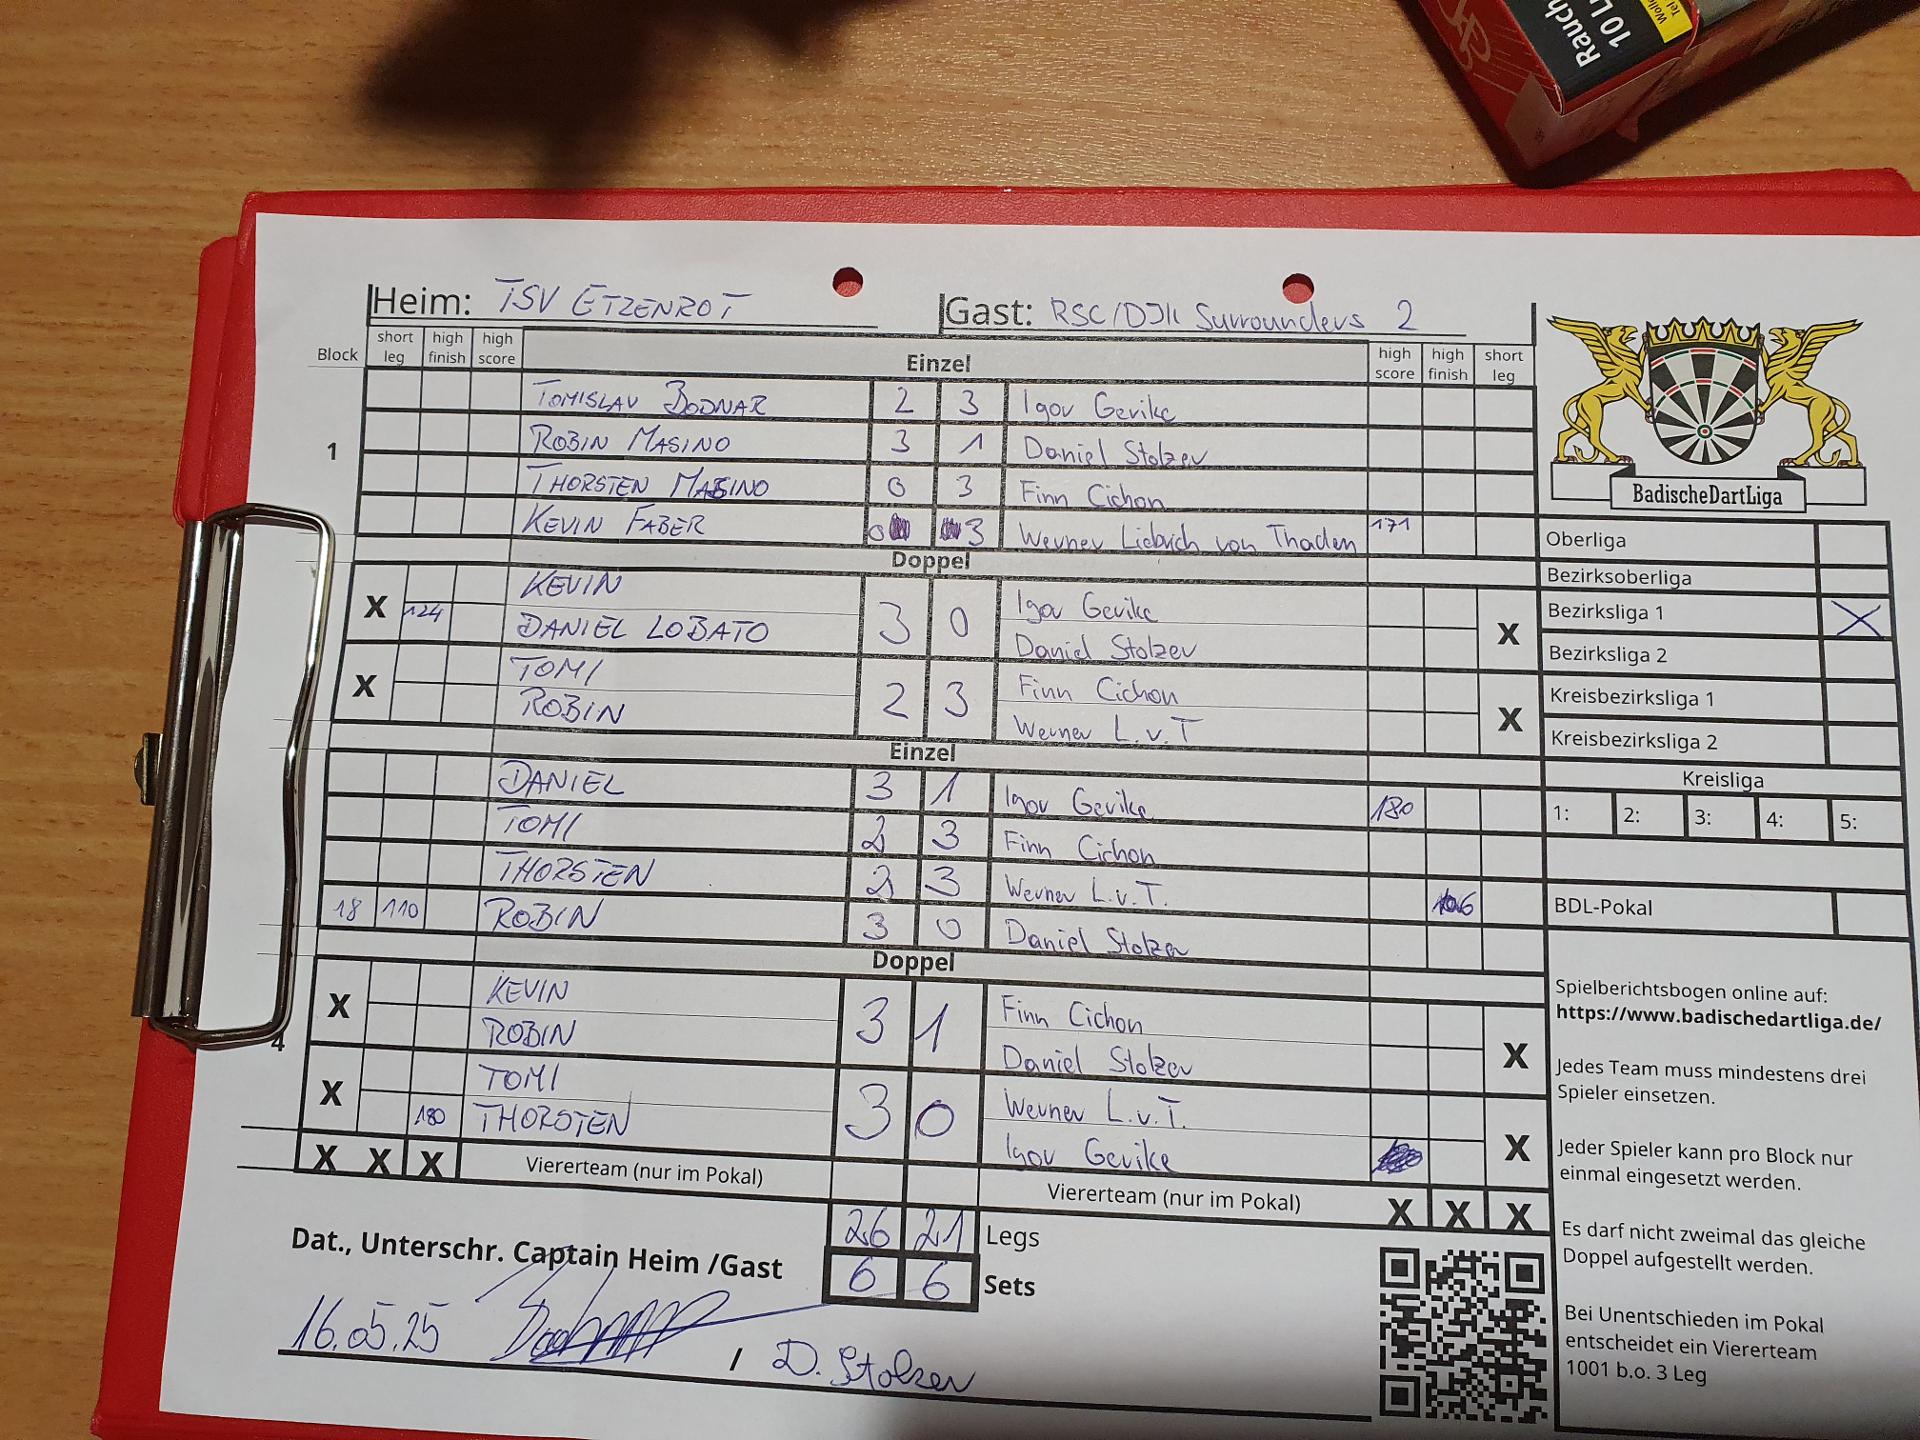 Rauch
10 L
Heim: TSV ETZENROT Gast: RSC/DJK Surrounders 2
Block short leg high finish high score Einzel high score high finish short leg
TOMISLAV BODNAR 2 3 Igor Gerike
1 ROBIN MASINO 3 1 Daniel Stolzer
THORSTEN MASINO 0 3 Finn Cichon
KEVIN FABER 0 3 Werner Liebrich von Thaden 171
Doppel
KEVIN Igor Gerike
X 124 DANIEL LOBATO 3 0 Daniel Stolzer X
TOMI Finn Cichon
X ROBIN 2 3 Werner L.v.T X
Einzel
DANIEL 3 1 Igor Gerike 180
TOMI 2 3 Finn Cichon
THORSTEN 2 3 Werner L.v.T.
18 110 ROBIN 3 0 Daniel Stolzer
Doppel
KEVIN Finn Cichon
X ROBIN 3 1 Daniel Stolzer X
4
TOMI Werner L.v.T.
X 180 THORSTEN 3 0 Igor Gerike X
X X X Viererteam (nur im Pokal) Viererteam (nur im Pokal) X X X
26 21 Legs
6 6 Sets
Dat., Unterschr. Captain Heim /Gast
16.05.25 / D. Stolzer
BadischeDartLiga
Oberliga
Bezirksoberliga
Bezirksliga 1 X
Bezirksliga 2
Kreisbezirksliga 1
Kreisbezirksliga 2
Kreisliga
1: 2: 3: 4: 5:
BDL-Pokal
Spielberichtsbogen online auf:
https://www.badischedartliga.de/
Jedes Team muss mindestens drei
Spieler einsetzen.
Jeder Spieler kann pro Block nur
einmal eingesetzt werden.
Es darf nicht zweimal das gleiche
Doppel aufgestellt werden.
Bei Unentschieden im Pokal
entscheidet ein Viererteam
1001 b.o. 3 Leg